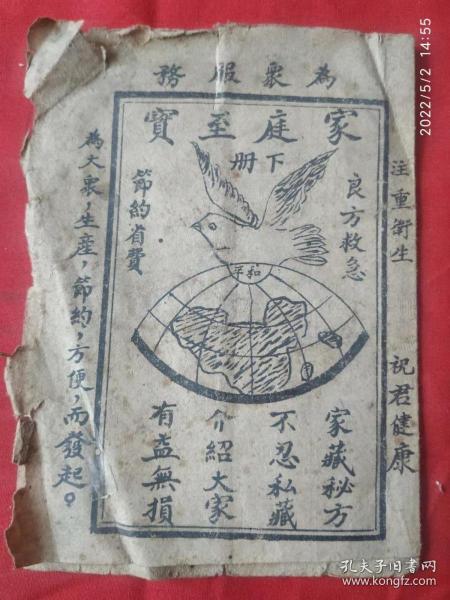 為衆服務
家庭至寶
下册
良方救急
節約省費
和平
家藏秘方
不忍私藏
介紹大家
有益無損
注重衛生 祝君健康
為大衆，生産，節約，方便，而發起？
2022/5/2 14:55
孔夫子旧书网
www.kongfz.com